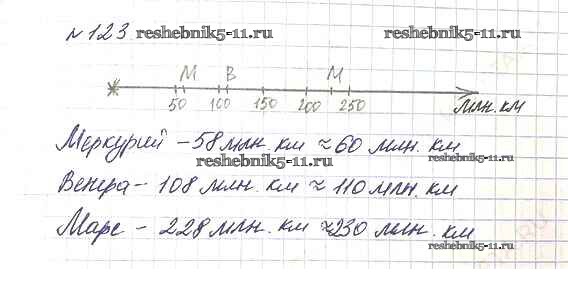 №123. reshebnik5-11.ru reshebnik5-11.ru
М В М
50 100 150 200 250
млн. км
Меркурий – 58 млн. км ≈ 60 млн. км
reshebnik5-11.ru reshebnik5-11.ru
Венера – 108 млн. км ≈ 110 млн. км
Марс – 228 млн. км ≈ 230 млн. км
reshebnik5-11.ru